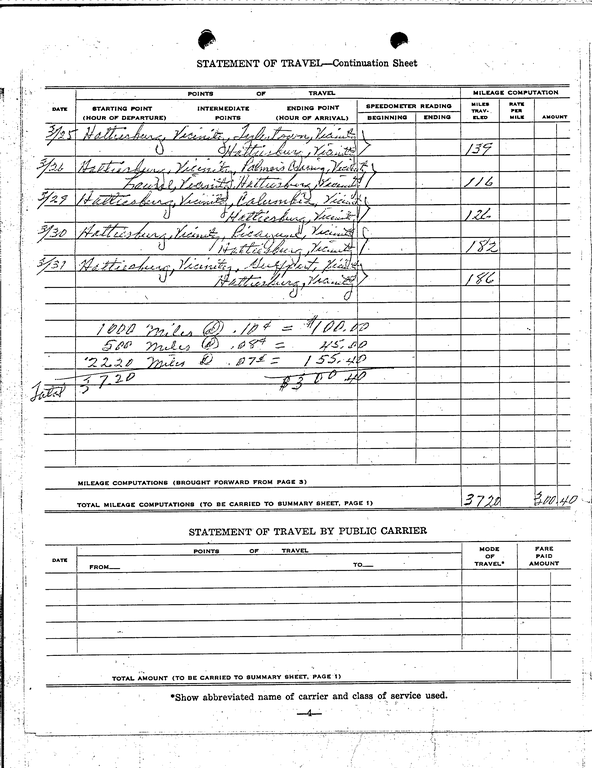 STATEMENT OF TRAVEL—Continuation Sheet
POINTS OF TRAVEL
MILEAGE COMPUTATION
DATE
STARTING POINT (HOUR OF DEPARTURE)
INTERMEDIATE POINTS
ENDING POINT (HOUR OF ARRIVAL)
SPEEDOMETER READING
BEGINNING ENDING
MILES TRAV- ELED
RATE PER MILE
AMOUNT
3/25 Hattiesburg, Vicinity, Tylertown, Vicinity
Hattiesburg, Vicinity 139
3/26 Hattiesburg, Vicinity, Palmers Crossing, Vicinity
Laurel, Vicinity, Hattiesburg, Vicinity 116
3/29 Hattiesburg, Vicinity, Columbia, Vicinity
Hattiesburg, Vicinity 126
3/30 Hattiesburg, Vicinity, Picayune, Vicinity
Hattiesburg, Vicinity 182
3/31 Hattiesburg, Vicinity, Gulfport, Vicinity
Hattiesburg, Vicinity 186
1000 Miles @ .10¢ = $100.00
500 Miles @ .08¢ 45.00
2220 Miles @ .07¢ = 155.40
Total 3720 $300.40
MILEAGE COMPUTATIONS (BROUGHT FORWARD FROM PAGE 3)
TOTAL MILEAGE COMPUTATIONS (TO BE CARRIED TO SUMMARY SHEET, PAGE 1) 3720 300.40
STATEMENT OF TRAVEL BY PUBLIC CARRIER
DATE
POINTS OF TRAVEL
FROM TO
MODE OF TRAVEL*
FARE PAID AMOUNT
TOTAL AMOUNT (TO BE CARRIED TO SUMMARY SHEET, PAGE 1)
*Show abbreviated name of carrier and class of service used.
—4—